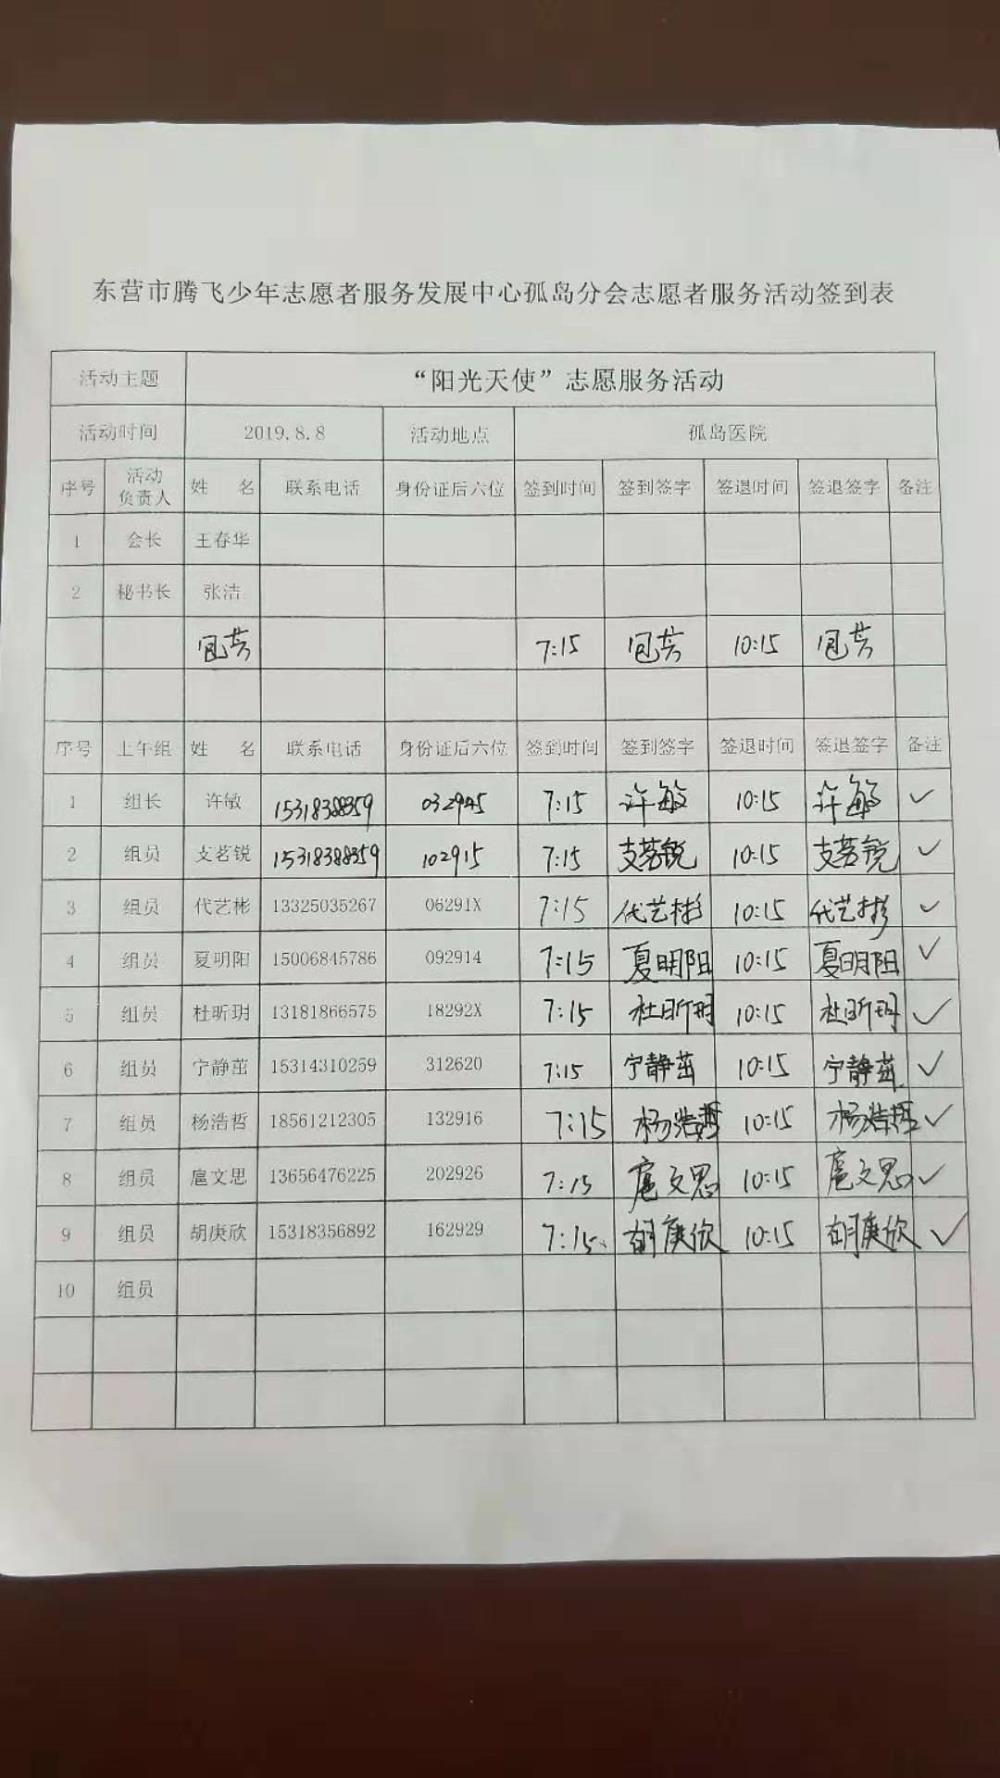 东营市腾飞少年志愿者服务发展中心孤岛分会志愿者服务活动签到表
活动主题 “阳光天使”志愿服务活动
活动时间 2019.8.8 活动地点 孤岛医院
序号 活动负责人 姓 名 联系电话 身份证后六位 签到时间 签到签字 签退时间 签退签字 备注
1 会长 王存华
2 秘书长 张洁
7:15 10:15
序号 上午组 姓 名 联系电话 身份证后六位 签到时间 签到签字 签退时间 签退签字 备注
1 组长 许敏 15318388359 032945 7:15 许敏 10:15 许敏 ✓
2 组员 支茗锐 15318388359 102915 7:15 支茗锐 10:15 支茗锐 ✓
3 组员 代艺彬 13325035267 06291X 7:15 代艺彬 10:15 代艺彬 ✓
4 组员 夏明阳 15006845786 092914 7:15 夏明阳 10:15 夏明阳 ✓
5 组员 杜昕玥 13181866575 18292X 7:15 杜昕玥 10:15 杜昕玥 ✓
6 组员 宁静茁 15314310259 312620 7:15 宁静茁 10:15 宁静茁 ✓
7 组员 杨浩哲 18561212305 132916 7:15 杨浩哲 10:15 杨浩哲 ✓
8 组员 扈文思 13656476225 202926 7:15 扈文思 10:15 扈文思 ✓
9 组员 胡庚欣 15318356892 162929 7:15 胡庚欣 10:15 胡庚欣 ✓
10 组员